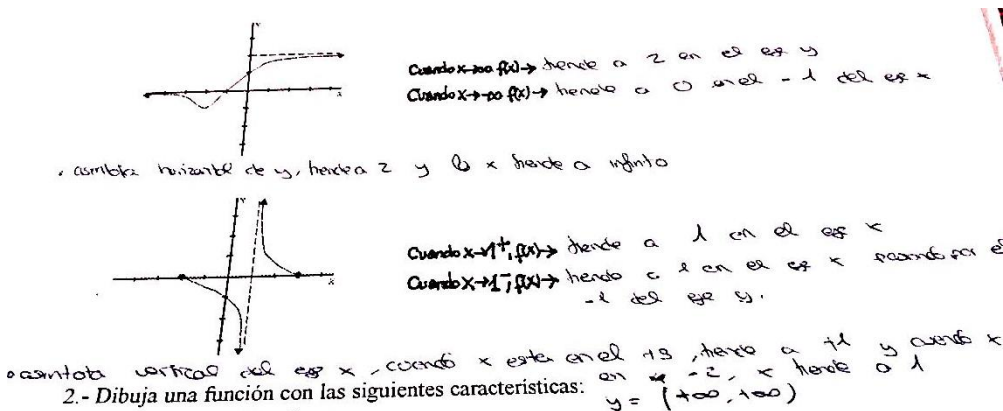 Cuando x→∞ f(x)→ tiende a 2 en el eje y
Cuando x→-∞ f(x)→ tiende a 0 en el -1 del eje x
asintota horizontal de y, tiende a 2 y la x tiende a infinito
Cuando x→1⁺, f(x)→ tiende a 1 en el eje x
Cuando x→1⁻, f(x)→ tiende a 1 en el eje x pasando por el
-1 del eje y.
asintota vertical del eje x, cuando x esta en el +3, tiende a +1 y cuando x
en -2, x tiende a 1
2.- Dibuja una función con las siguientes características:
y = (+∞, +∞)